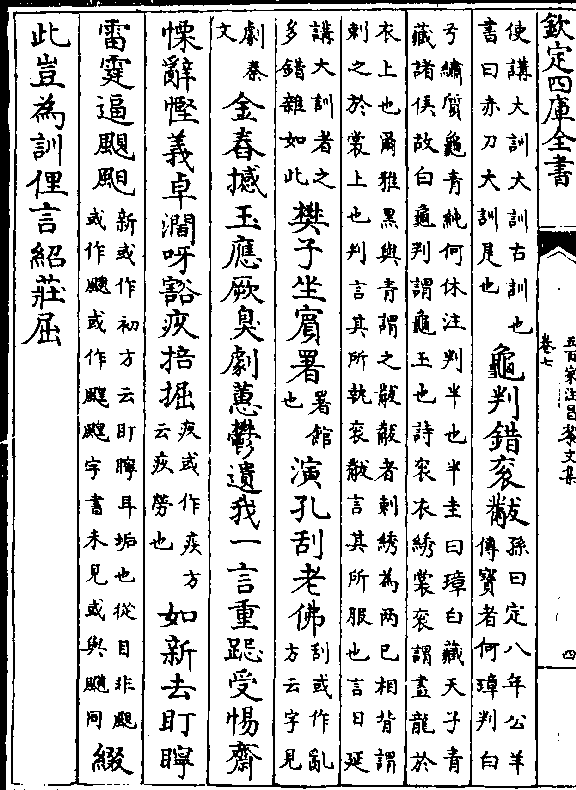 欽定四庫全書
五百家注昌黎文集
卷七
四
使講大訓大訓古訓也
書曰赤刀大訓是也
龜判錯衮黻
孫曰定八年公羊
傳寳者何璋判白
弓繡質龜青純何休注判半也半圭曰璋白藏天子青
藏諸侯故曰龜判謂龜玉也詩衮衣繡裳衮謂畫龍於
衣上也爾雅黑與青謂之黻黻者刺綉為兩已相背謂
刺之於裳上也判言其所執衮黻言其所服也言日延
講大訓者之
多錯雜如此
樊子坐賓署
署館
也
演孔刮老佛
刮或作亂
方云字見
劇秦
文
金舂撼玉應厥臭劇蕙鬱遺我一言重跽受惕齋
慄辭慳義卓濶呀豁疚掊掘
疚或作疾方
云疚勞也
如新去盯聹
雷霆逼颶䬍
新或作初方云盯聹耳垢也從目非颶
或作颸或作䫻䫻字書未見或與颸同
綴
此豈為訓俚言紹莊屈